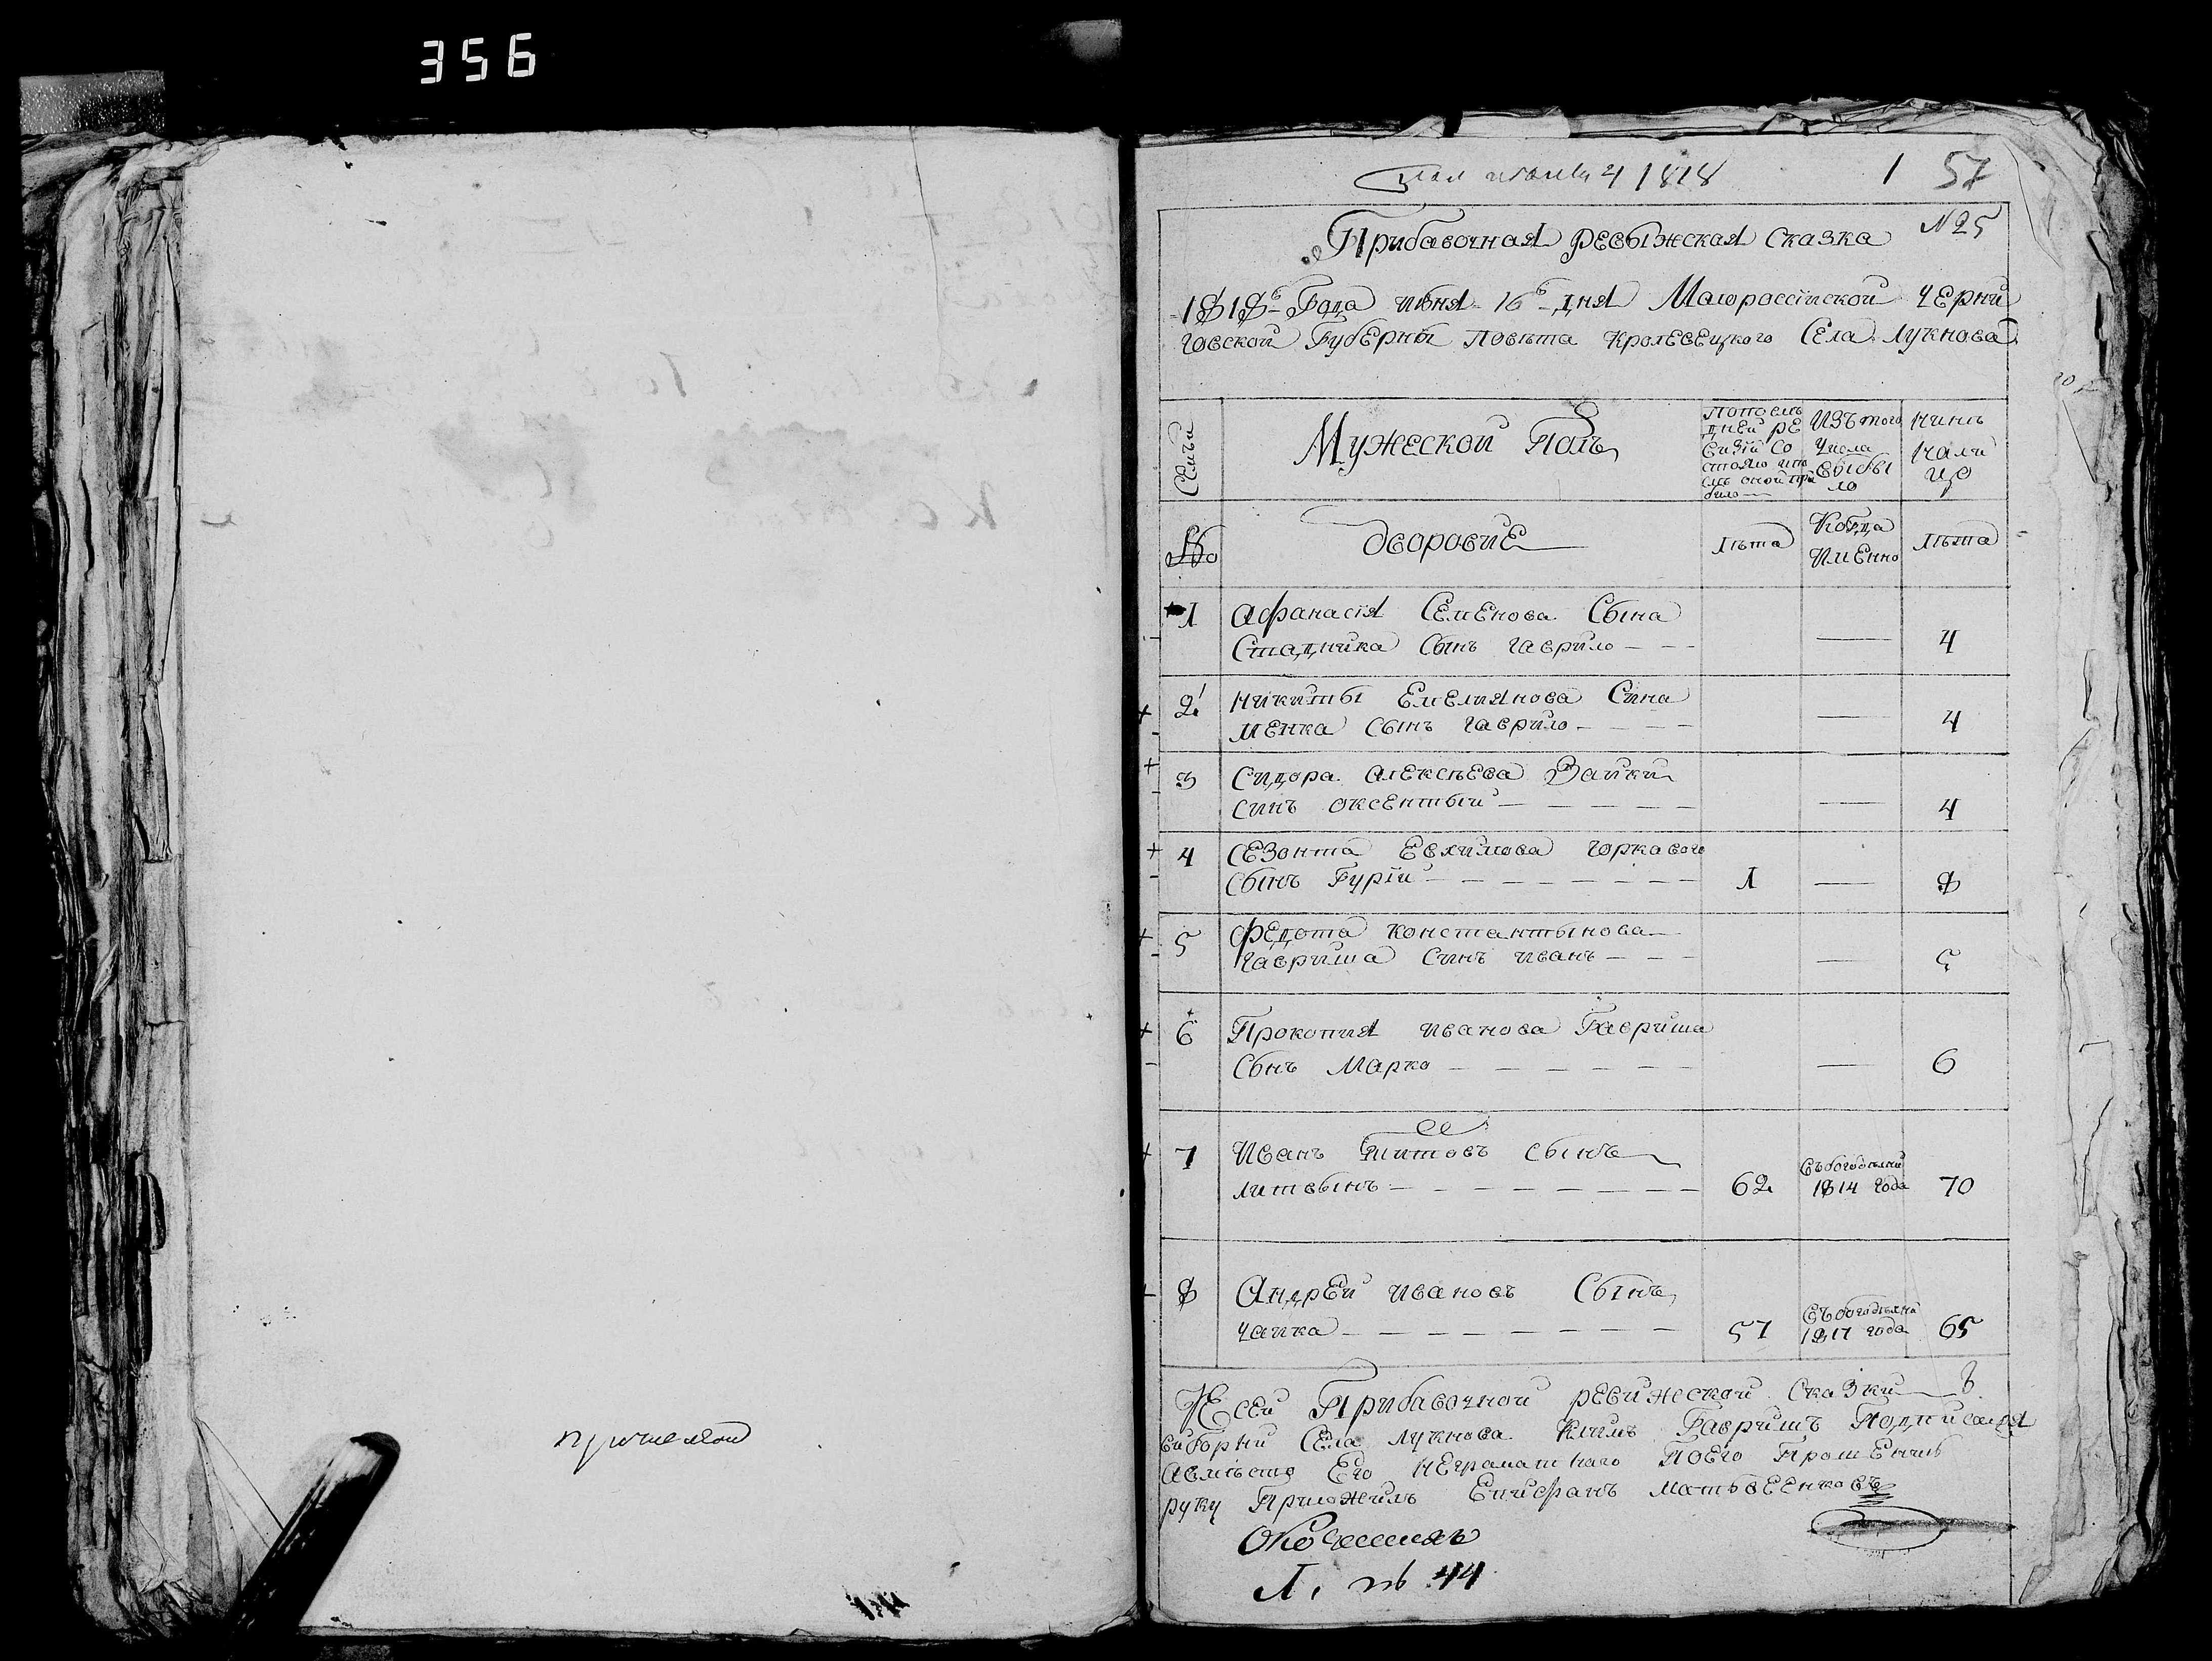 356
1818
1 57
№25
Прибавочная ревыжская сказка
1818го Года июня 16го дня Малороссийской Черни
говской Губерны повѣта Кролевецкого Села Лукнова
Семьи
Мужеской полъ
По послѣ
дней ре
визій со
стояло ипо
слѣ оной при
было
Изъ того
числа
выбы
ло
Нинѣ
нали
цо
№
дворовие
лѣта
Когда
именно
лѣта
1 Афанасія Семенова Сына
Стадника Сынъ Гаврило — — — 4
2 Никиты Емелиянова Сина
менка Сынъ Гаврило — — — 4
3 Сидора Алексѣева Зайки
синъ оксентый — — — 4
4 Сезонта Евхимова Горкавого
Сынъ Гурій — — — 1 — 8
5 Федота Константынова
Гавриша Синъ иванъ — — — 5
6 Прокопия иванова Гавриша
Сынъ Марко — — — 6
7 Иванъ Титовъ сынъ
литвынъ — — — 62 Съ богодѣлнѣ 1814 года 70
8 Андрей ивановъ Сынъ
чайка — — — 57 Съ богодѣлнѣ 1817 года 65
К сей Прибавочной ревижской Сказки в
виборни Села Лукнова Климъ Гавришъ Подписался
авмѣсто Его неграматнаго поего прошению
руку Приложилъ Епифанъ Матвѣенковъ
44